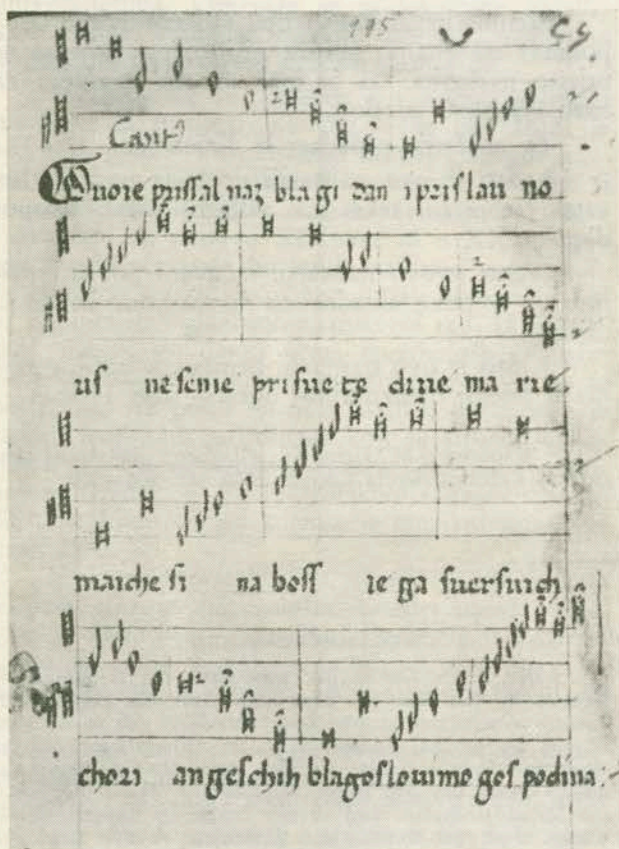 195 C5
Cant⁹
Vuore prissal naz bla gi dan i prislau no
us nescnie prisue te diue ma rie.
maiche si na boss ie ga suersuich
chori angeschih blagoslouimo gos podina: